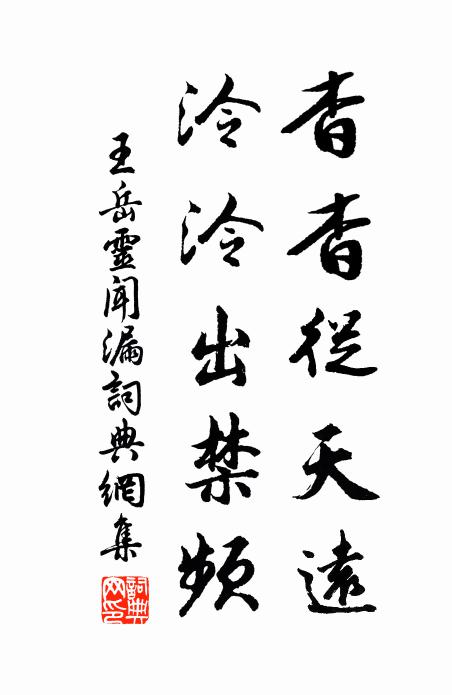 杳杳從天遠
泠泠出禁頻
王岳靈聞漏詞典網集
詞典网印